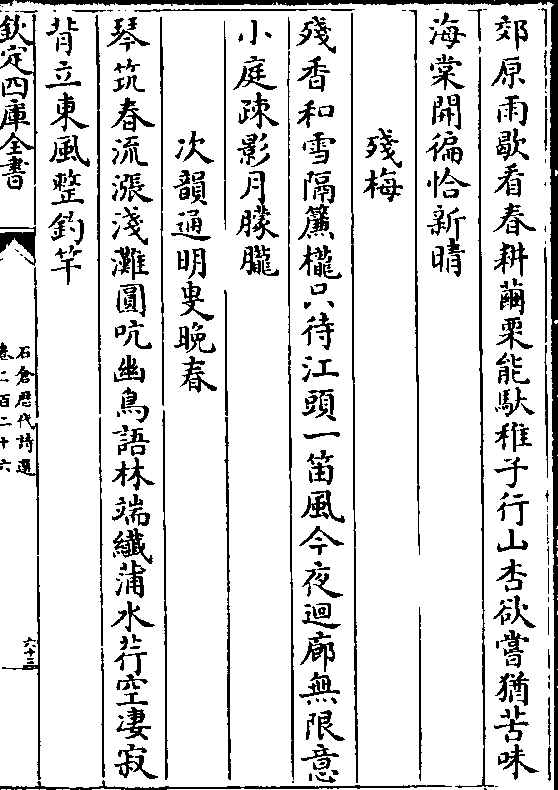 郊原雨歇看春耕繭栗能馱稚子行山杏欲嘗猶苦味
海棠開徧恰新晴
殘梅
殘香和雪隔簾櫳只待江頭一笛風今夜迴廊無限意
小庭疎影月朦朧
次韻通明叟晚春
琴筑春流漲淺灘圓吭幽鳥語林端纖蒲水荇空凄寂
背立東風整釣竿
欽定四庫全書
石倉歴代詩選
卷二百二十六
六十三